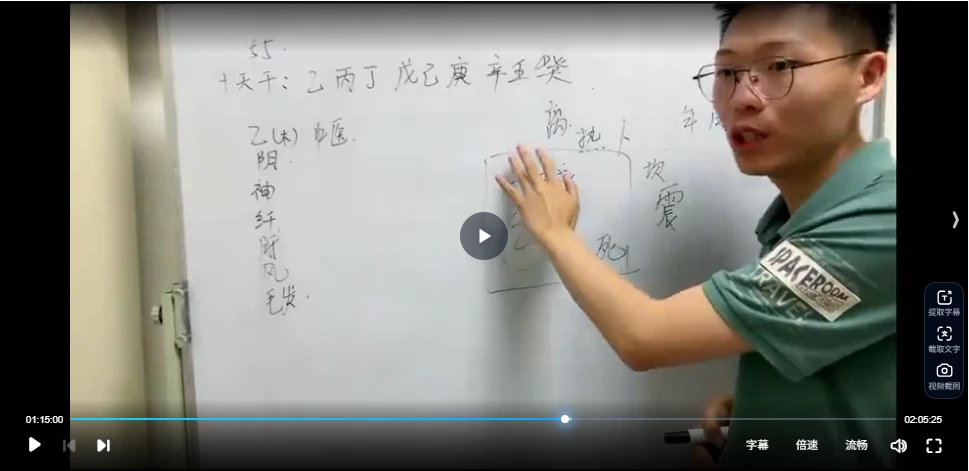 55.
十天干：乙丙丁戊己庚辛壬癸.
离.
热卜
年
乙(木) 中医.
阴.
神
纤
肝
风
毛发.
坎
震
死
SPACEROOM
TRAVEL
提取字幕
截取文字
视频截图
01:15:00
02:05:25
字幕 倍速 流畅